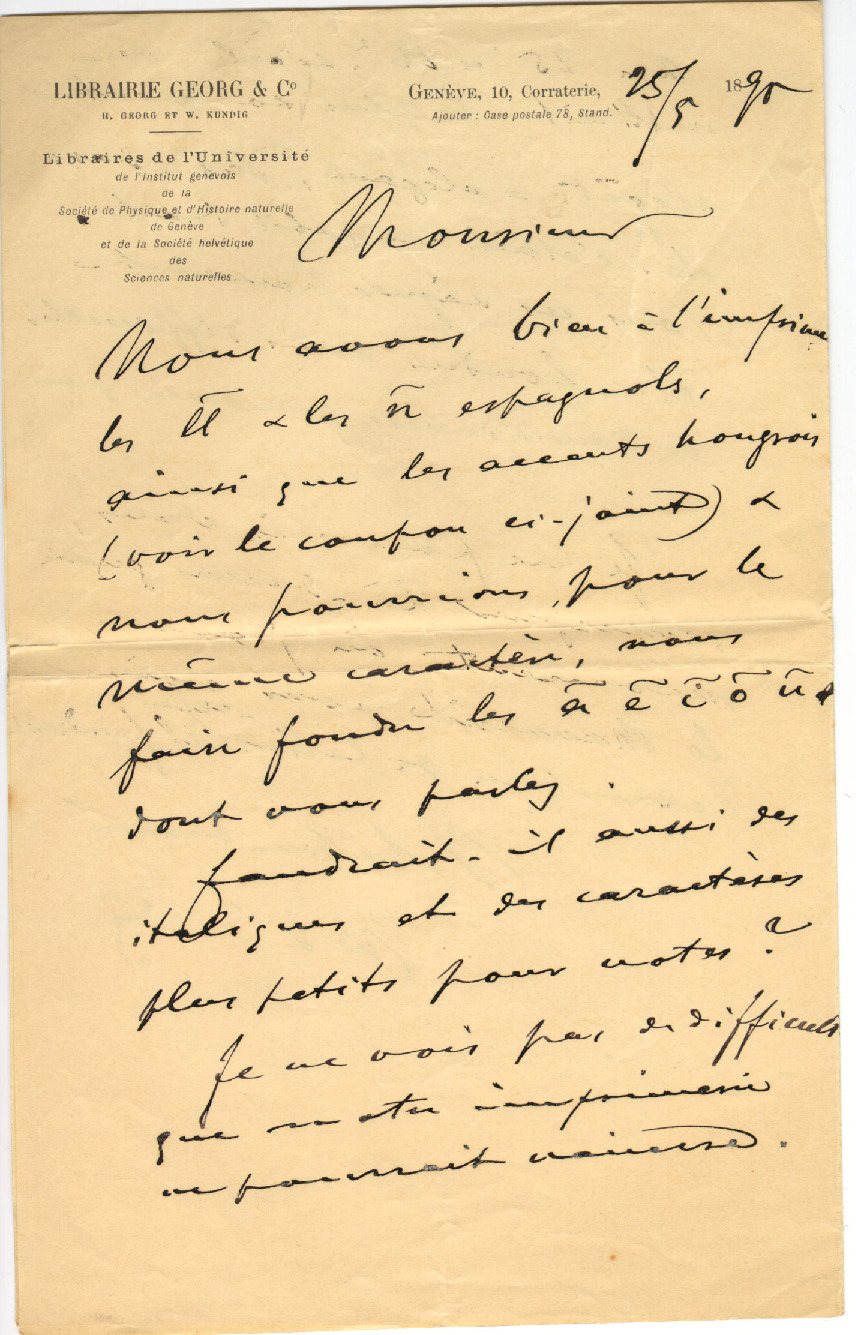 LIBRAIRIE GEORG & Cº
H. GEORG ET W. KUNDIG
Libraires de l'Université
de l'Institut genevois
de la
Société de Physique et d'Histoire naturelle
de Genève
et de la Société helvétique
des
Sciences naturelles.
GENÈVE, 10, Corraterie, 25/5 1890
Ajouter : Case postale 78, Stand.
Monsieur
Nous avons bien à l'imprime
les l̃l & les ñ espagnols,
ainsi que les accents hongrois
(voir le coupon ci-joint) &
nous pourrions, pour le
même caractère, nous
faire fondre les ã ẽ ĩ õ ũ &
dont vous parlez.
faudrait-il aussi des
italiques et des caractères
plus petits pour notes ?
Je ne vois pas de difficulté
que notre imprimerie
ne pourrait vaincre.